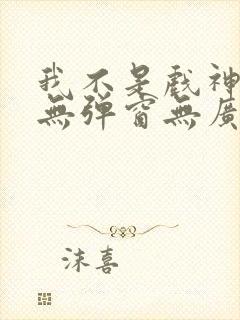 我不是戲神
無彈窗無廣
沫喜